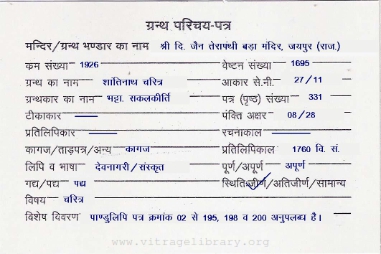 ग्रन्थ परिचय-पत्र
मन्दिर/ग्रन्थ भण्डार का नाम श्री दि. जैन तेरापंथी बड़ा मंदिर, जयपुर (राज.)
क्रम संख्या 1926 वेष्टन संख्या 1695
ग्रन्थ का नाम शातिनाथ चरित्र आकार से.मी. 27/11
ग्रन्थकार का नाम भट्टा. सकलकीर्ति पत्र (पृष्ठ) संख्या 331
टीकाकार — पंक्ति अक्षर 08/28
प्रतिलिपिकार — रचनाकाल —
कागज/ताड़पत्र/अन्य कागज प्रतिलिपिकाल 1760 वि. सं.
लिपि व भाषा देवनागरी/संस्कृत पूर्ण/अपूर्ण अपूर्ण
गद्य/पद्य पद्य स्थिति जीर्ण/अतिजीर्ण/सामान्य
विषय चरित्र
विशेष विवरण पाण्डुलिपि पत्र क्रमांक 02 से 195, 198 व 200 अनुपलब्ध है।
www.vitragelibrary.org